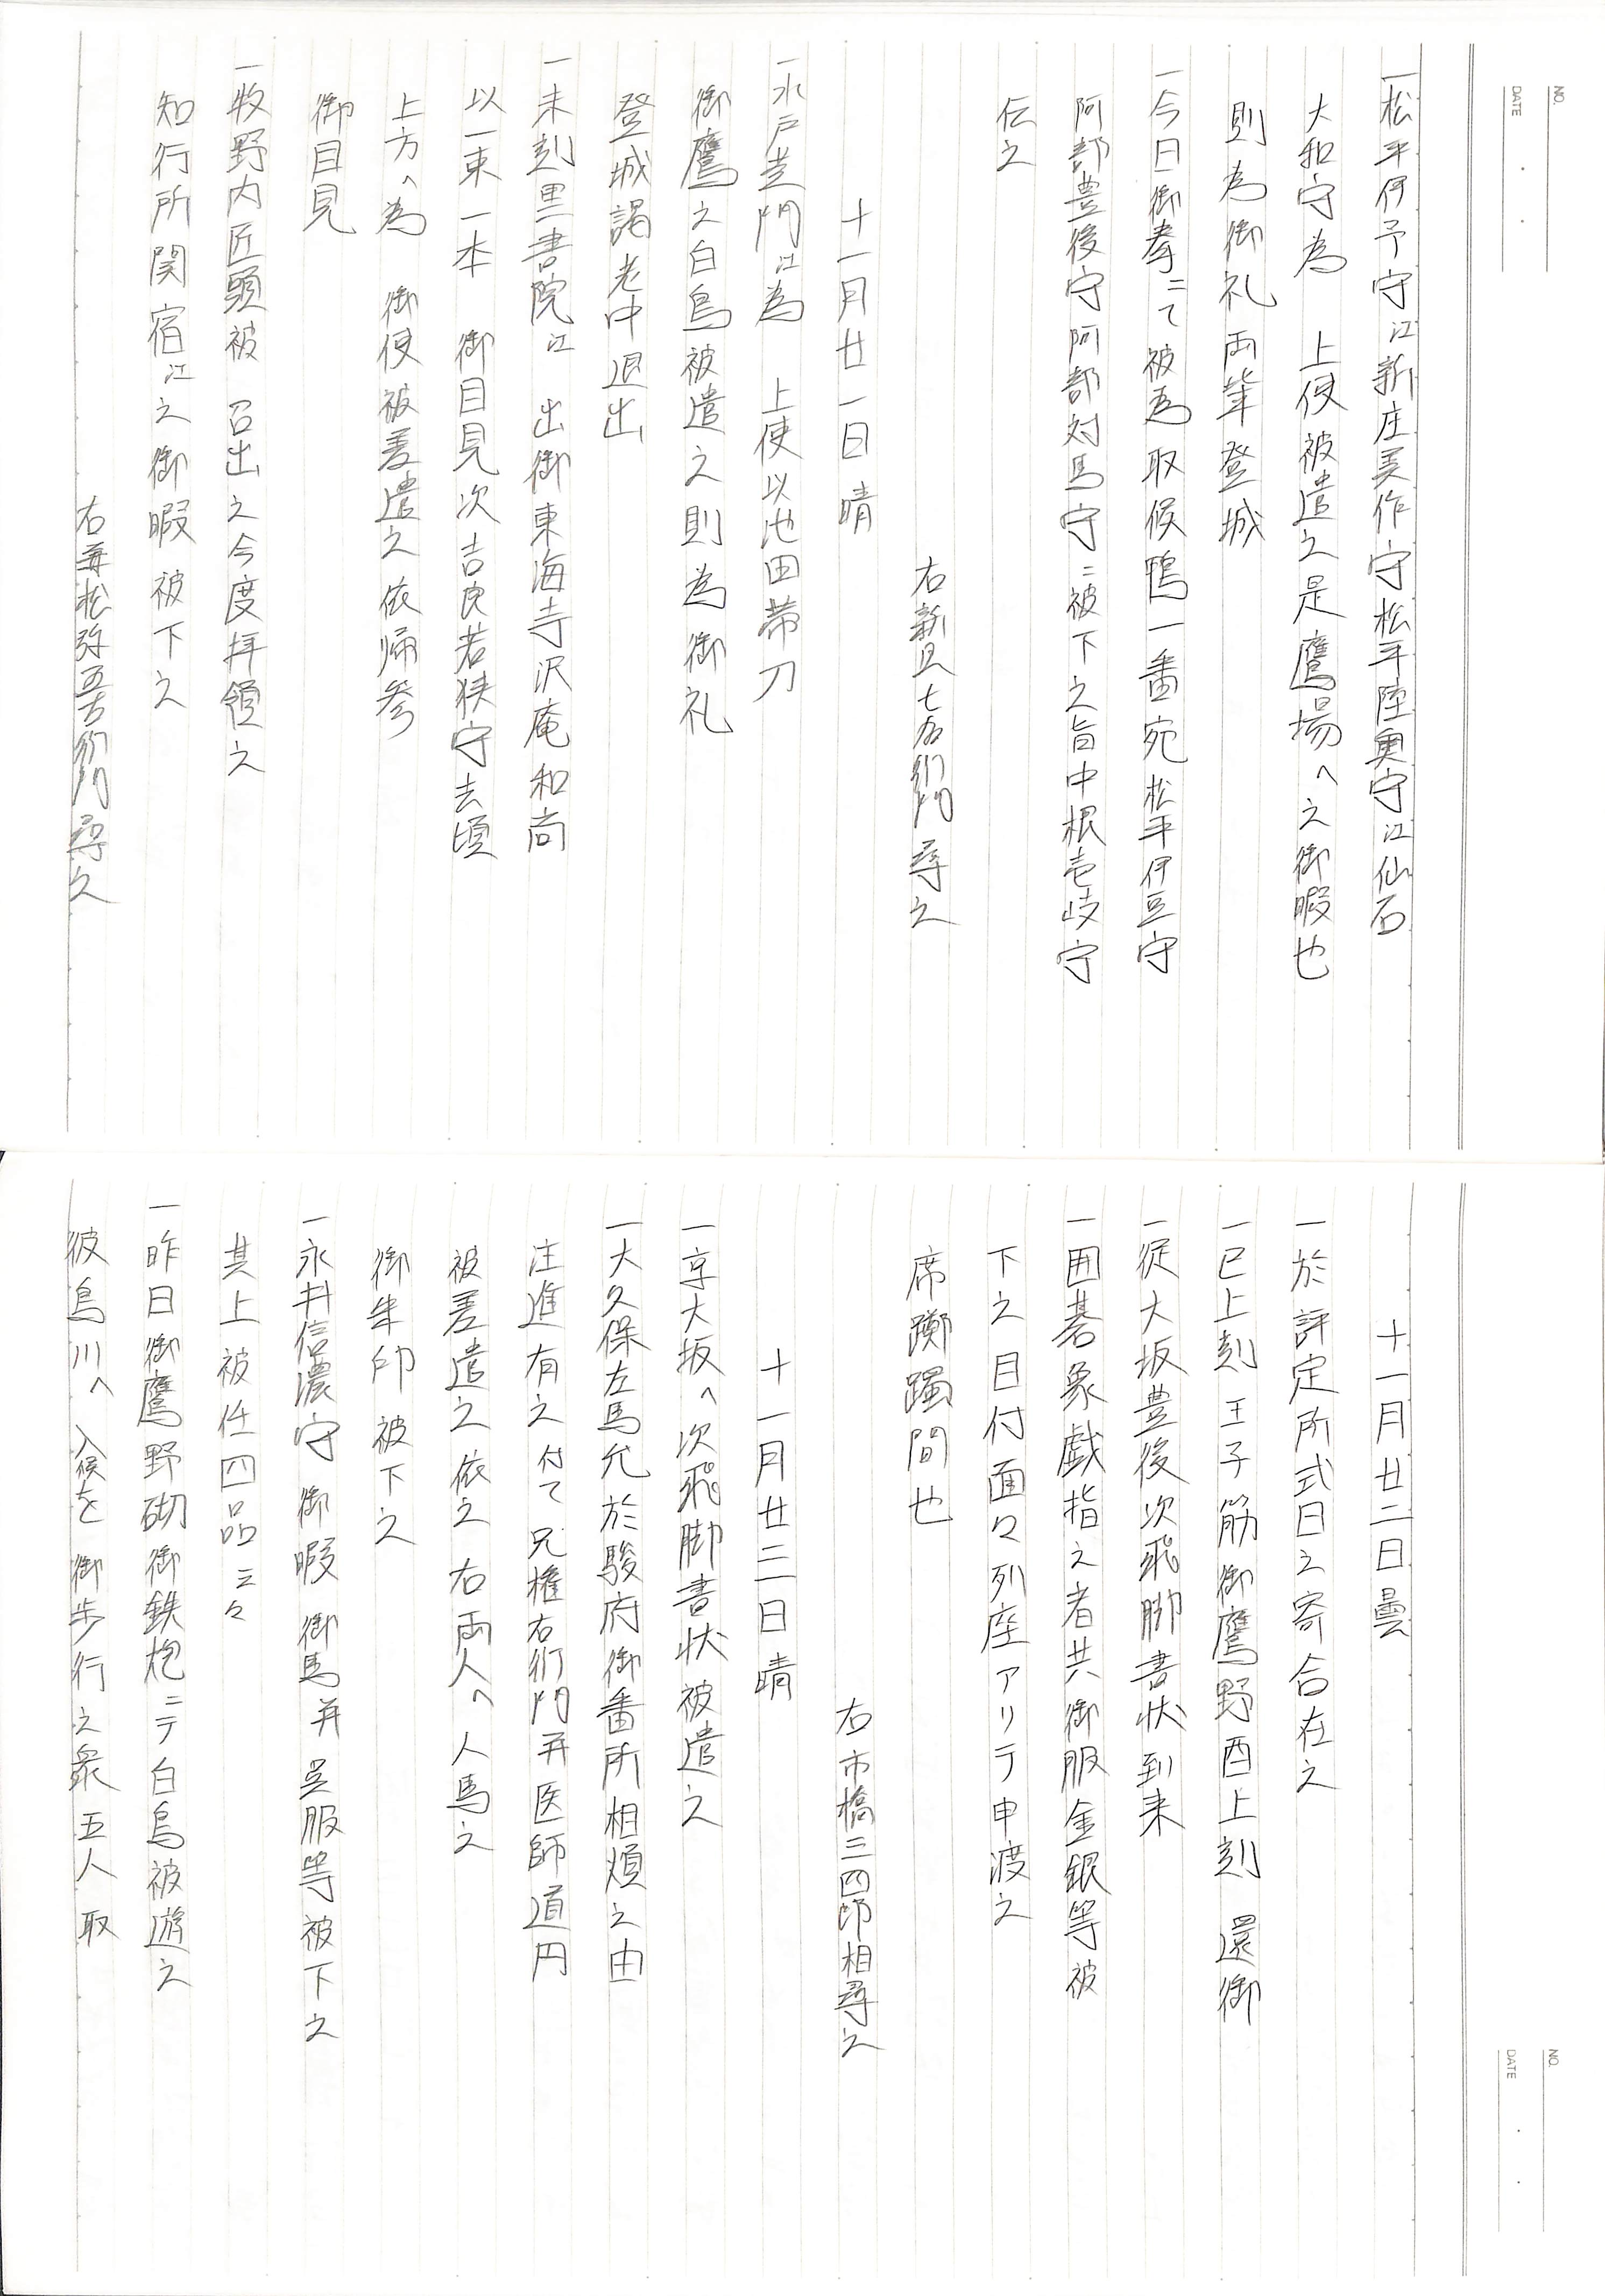 NO.
DATE
一松平伊予守江新庄美作守松平陸奥守江仙石
大和守為 上使被遣之是鷹場へ之御暇也
則為御礼両輩登城
一今日御拳ニて被為取候鴨一番宛松平伊豆守
阿部豊後守阿部対馬守ニ被下之旨中根壱岐守
伝之
右新見七右衛門尋之
十一月廿一日晴
一水戸黄門江為 上使以池田帯刀
御鷹之白鳥被遣之則為御礼
登城謁老中退出
一未刻黒書院江 出御東海寺沢庵和尚
以一束一本 御目見次吉良若狭守去頃
上方へ為 御使被差遣之依帰参
御目見
一牧野内匠頭被 召出之今度拝領之
知行所関宿江之御暇被下之
右兼松弥五右衛門尋之
NO.
DATE
十一月廿二日曇
一於評定所式日之寄合在之
一巳上刻王子筋御鷹野酉上刻 還御
一従大坂豊後次飛脚書状到来
一囲碁象戯指之者共御服金銀等被
下之目付面々列座アリテ申渡之
席躑躅間也
右市橋三四郎相尋之
十一月廿三日晴
一京大坂へ次飛脚書状被遣之
一大久保左馬允於駿府御番所相煩之由
注進有之付て兄権右衛門并医師道円
被差遣之依之右両人へ人馬之
御朱印被下之
一永井信濃守御暇御馬并呉服等被下之
其上被任四品云々
一昨日御鷹野砌御鉄炮ニテ白鳥被遊之
彼鳥川へ入候を御歩行之衆五人取